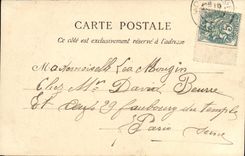 CARTE POSTALE
Ce côté est exclusivement réservé à l'adresse
Mademoiselle Lea Mougin
Chez Mr David Beurre
et Oeufs 29 faubourg du temple
Paris
Seine